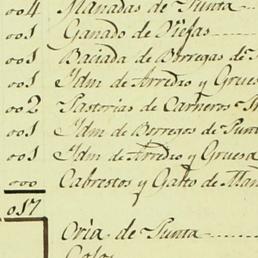 004 Manadas de Punta
001 Ganado de Viejas
001 Baciada de Borregas de
001 Idm de Arredro y Grues
002 Pastorias de Carneros
001 Idm de Borregos de Punta
001 Idm de Arredro y Gruesa
000 Cabrestos y Gasto de Man
017
Oria de Punta